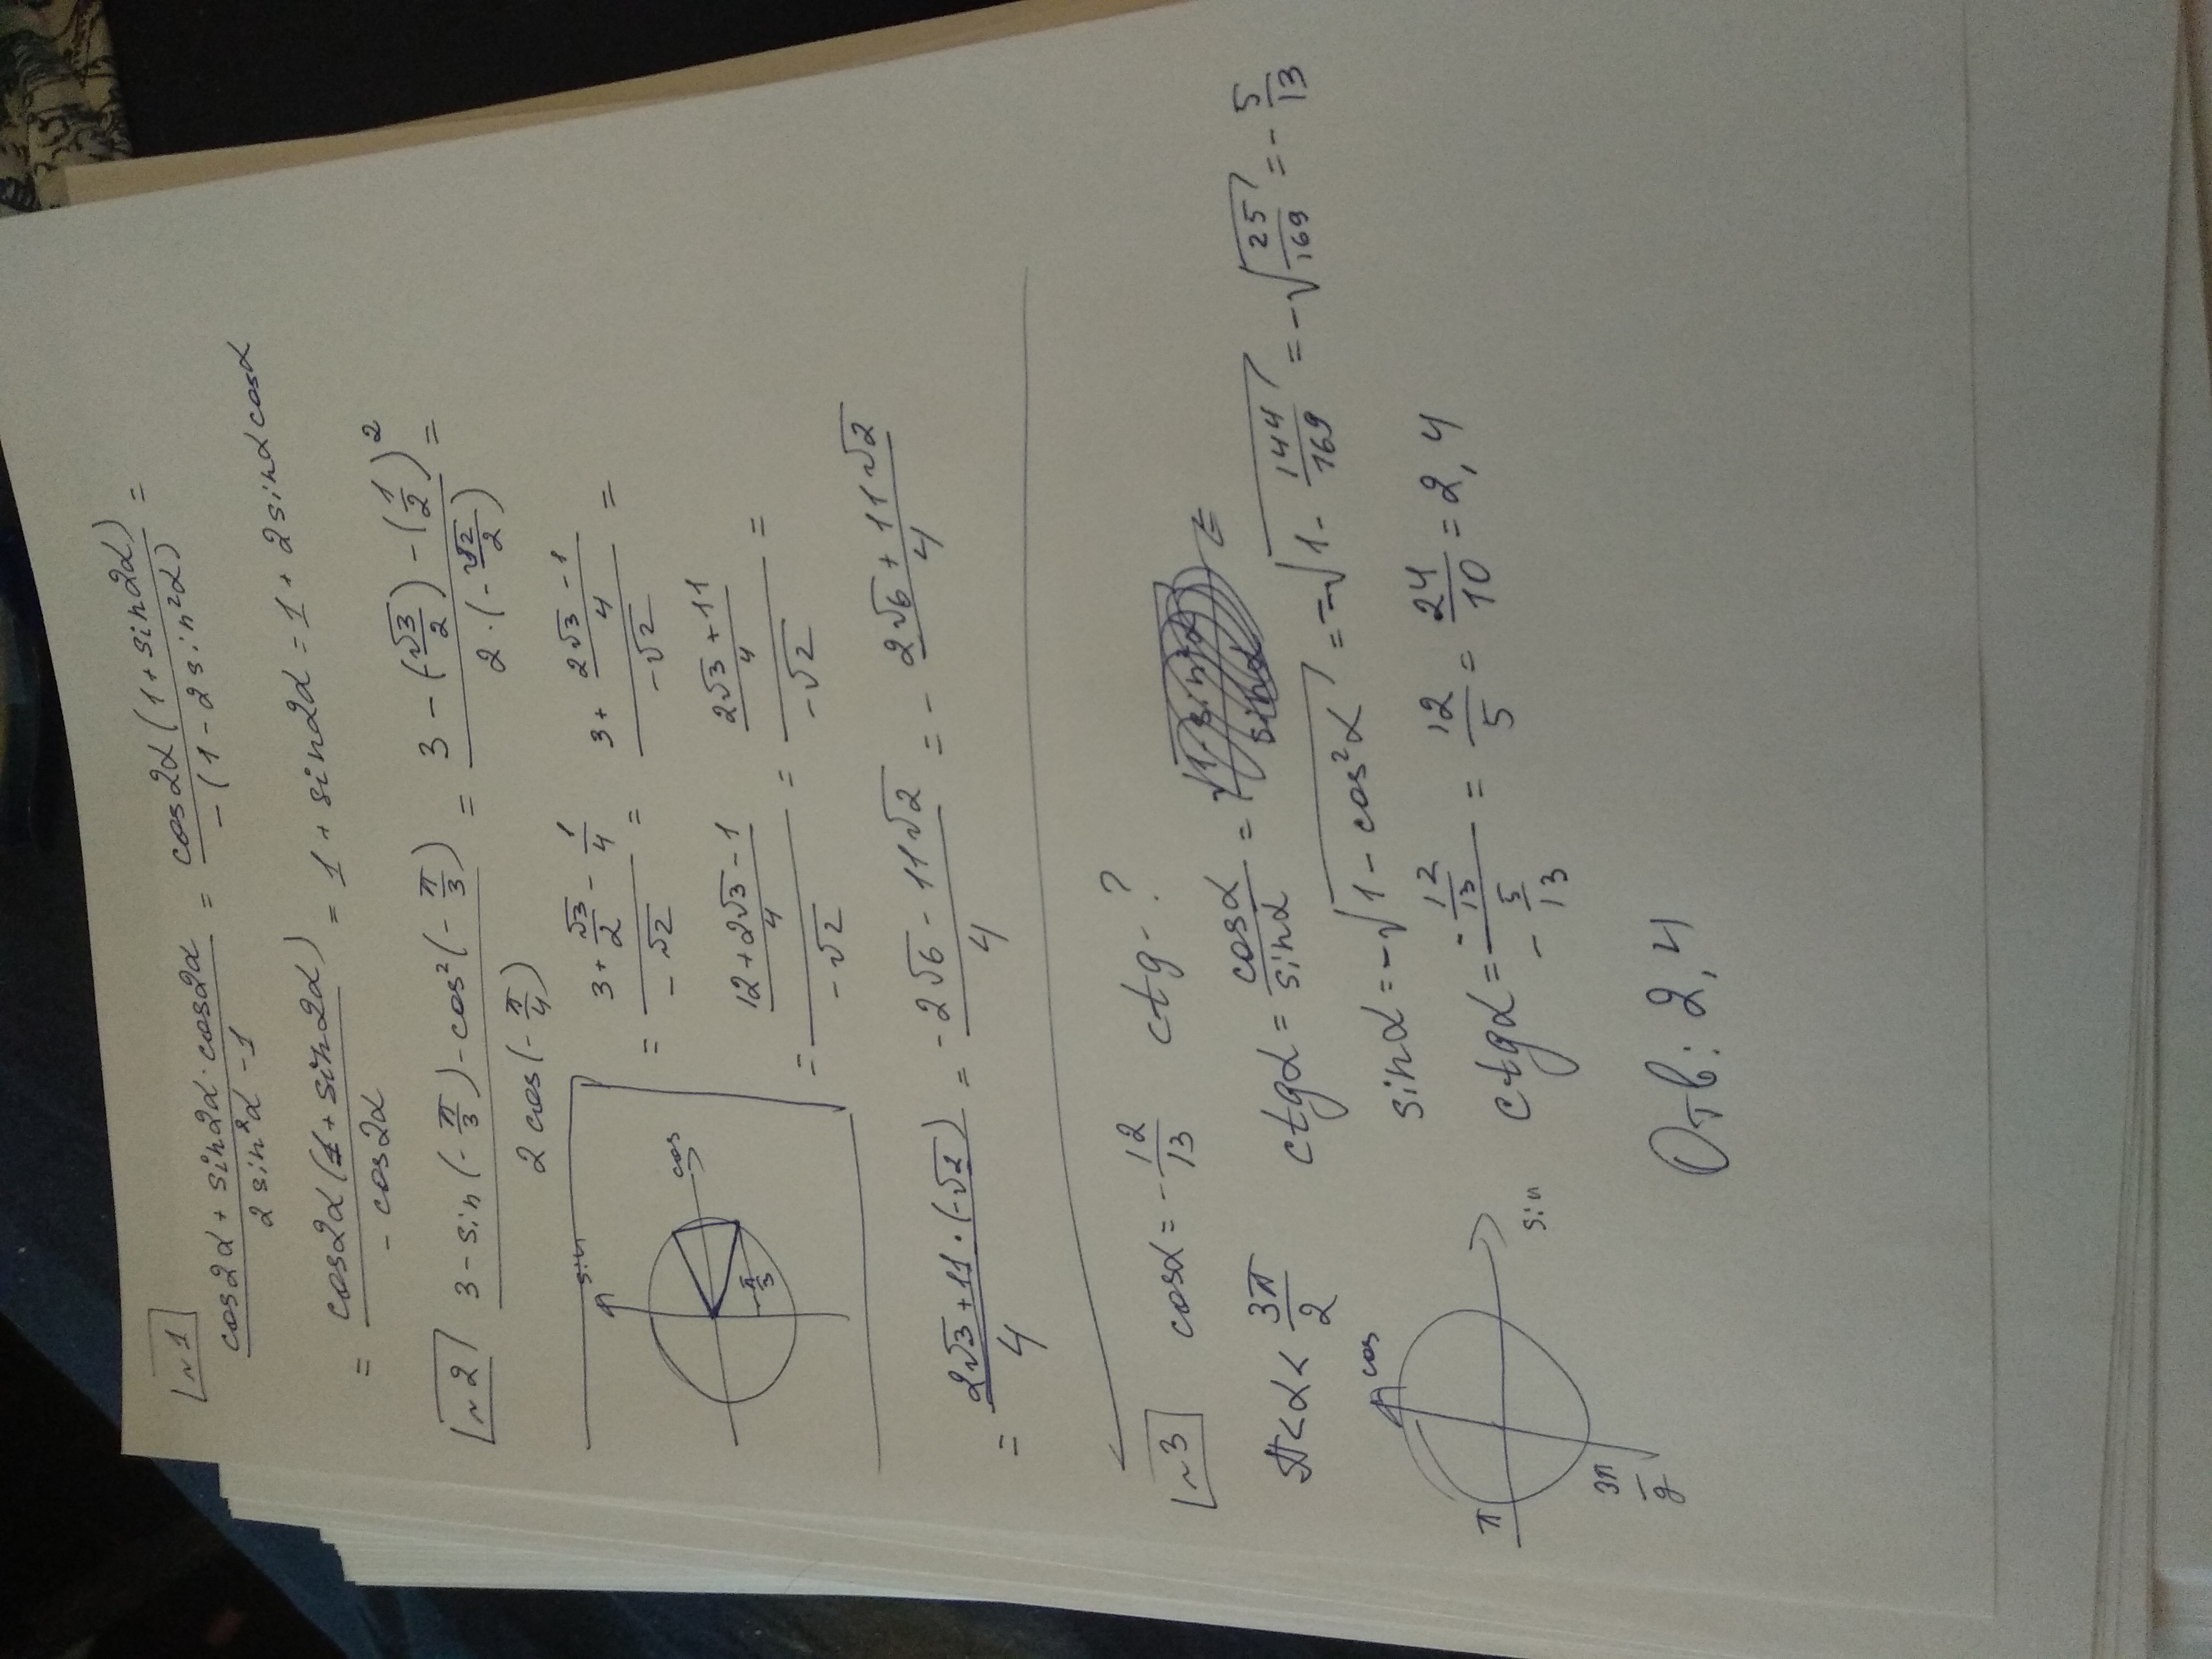 №1
(cos2α + sin2α · cos2α)/(2sin²α - 1) = (cos2α(1 + sin2α))/(-(1 - 2sin²α)) =
= (cos2α(1 + sin2α))/(-cos2α) = 1 + sin2α = 1 + 2sinαcosα
№2 (3 - sin(-π/3) - cos²(-π/3))/(2cos(-π/4)) = (3 - (√3/2) - (1/2)²)/(2·(-√2/2)) =
sin
cos
-π/3
= (3 + √3/2 - 1/4)/(-√2) = (3 + (2√3 - 1)/4)/(-√2) =
= ((12 + 2√3 - 1)/4)/(-√2) = ((2√3 + 11)/4)/(-√2) =
= (2√3 + 11 · (-√2))/4 = (-2√6 - 11√2)/4 = -(2√6 + 11√2)/4
№3 cosα = -12/13 ctg - ?
π < α < 3π/2 ctgα = cosα/sinα =
sinα = -√(1 - cos²α) = -√(1 - 144/169) = -√(25/169) = -5/13
ctgα = (-12/13)/(-5/13) = 12/5 = 24/10 = 2,4
cos
sin
π
3π/2
Отв: 2,4